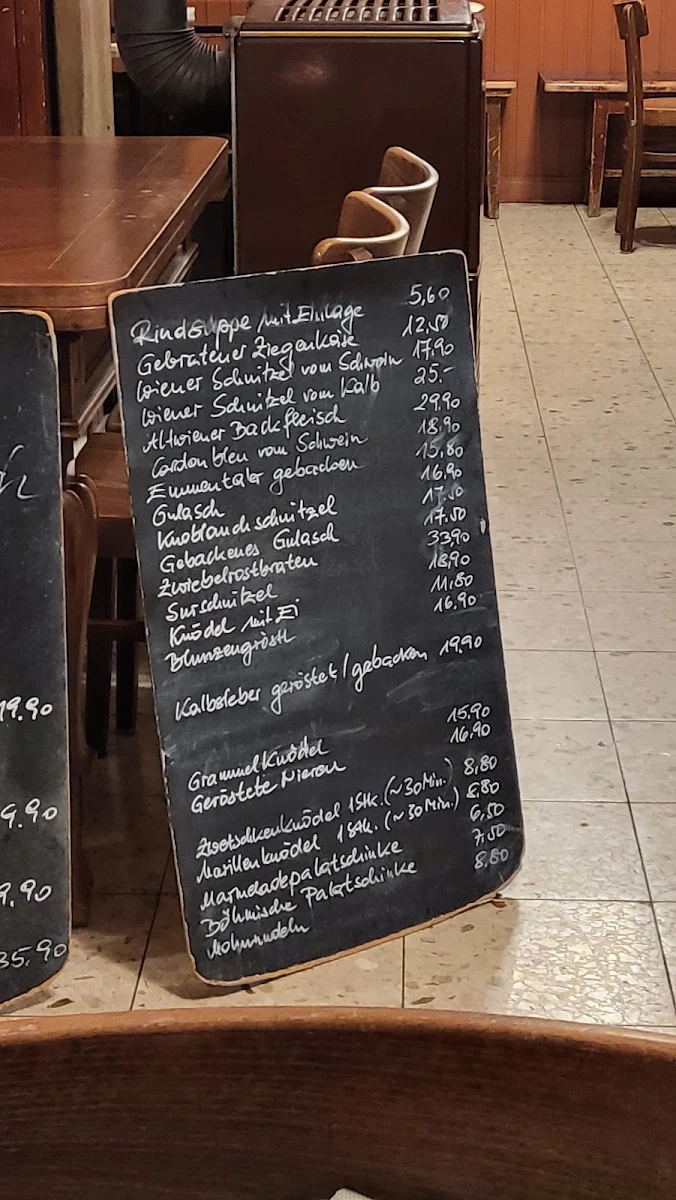 Rindsuppe mit Einlage 5,60
Gebratener Ziegenkäse 12,50
Wiener Schnitzel vom Schwein 17,90
Wiener Schnitzel vom Kalb 25.-
Altwiener Backfleisch 29,90
Cordon bleu vom Schwein 18,90
Emmentaler gebacken 15,80
Gulasch 16,90
Knoblauchschnitzel 17.50
Gebackenes Gulasch 17.50
Zwiebelrostbraten 33,90
Surschnitzel 18,90
Knödel mit Ei 11,80
Blunzengröstl 16,90
Kalbsleber geröstet/gebacken 19,90
Grammelknödel 15,90
Geröstete Nieren 16,90
Zwetschkenknödel 1Stk. (~30Min.) 8,80
Marillenknödel 1Stk. (~30Min.) 8,80
Marmeladepalatschinke 6,50
Böhmische Palatschinke 7,50
Mohnnudeln 8,80
19.90
9.90
9,90
35,90